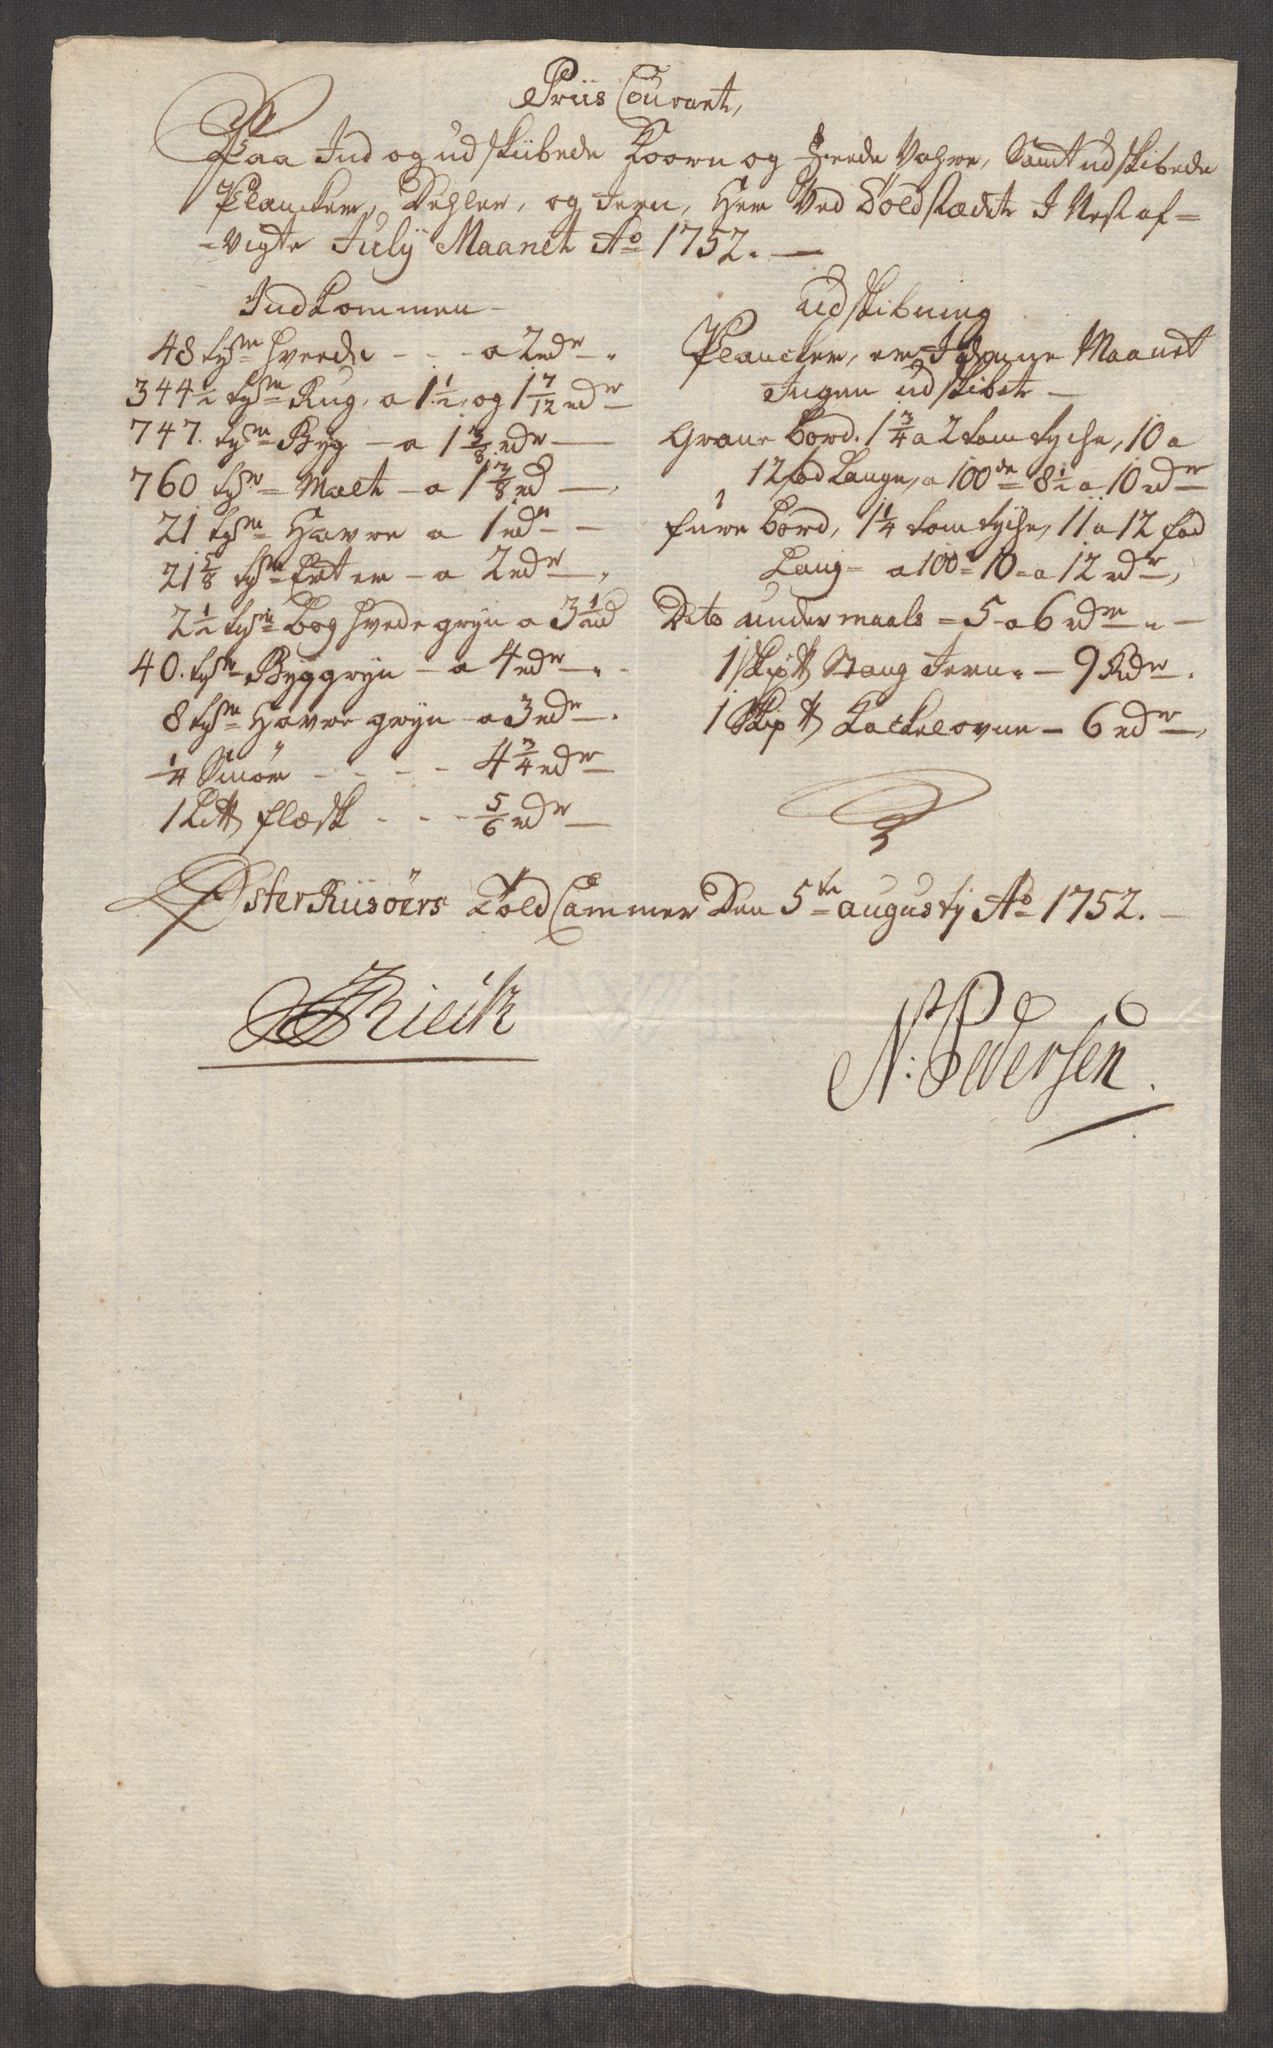 Priis Courant,
Paa Ind og udskiibede Koorn og Feede Vahre, Samt udskibede
Plancker, Dehler, og Jern, Her Ved Toldstædet I Nest af=
=vigte July Maanet Ao 1752.
Indkommen
48 tyr hveede - - - a 2 rdr
344½ tyr Rug, a 1½, og 1 7/12 rdr
747. tyr Byg - a 1 3/8 rdr
760 tyr Malt - a 1 3/8 rd
21 tyr Havre a 1 rdr
21 5/8 tyr Erter - a 2 rdr
2½ tyr Boghvedegryn a 3½ rd
40. tyr Byggryn - a 4 rdr
8 tyr Havre gryn - a 3 rdr
¼ Smør - - - - 4¾ rdr
1 Li℔ flæsk - - - 5/6 rdr
Udskibning
Plancker, er I denne Maanet
Ingen udskibet
Grane bord. 1¾ a 2 tom tyche, 10 a
12 fod Lange, a 100de 8½ a 10 rdr
fure bord, 1¼ tom tyche, 11 a 12 fod
Lang - a 100 = 10 = a 12 rdr,
Dito undermaals = 5 a 6 rdr
1 Skip℔ Stang Jern - 9 Rdr.
1 Skip℔ Kackelovne - 6 rdr,
Øster Riisøers Told Cammer Den 5te augusty Ao 1752.
Rieck
N: Pedersen.